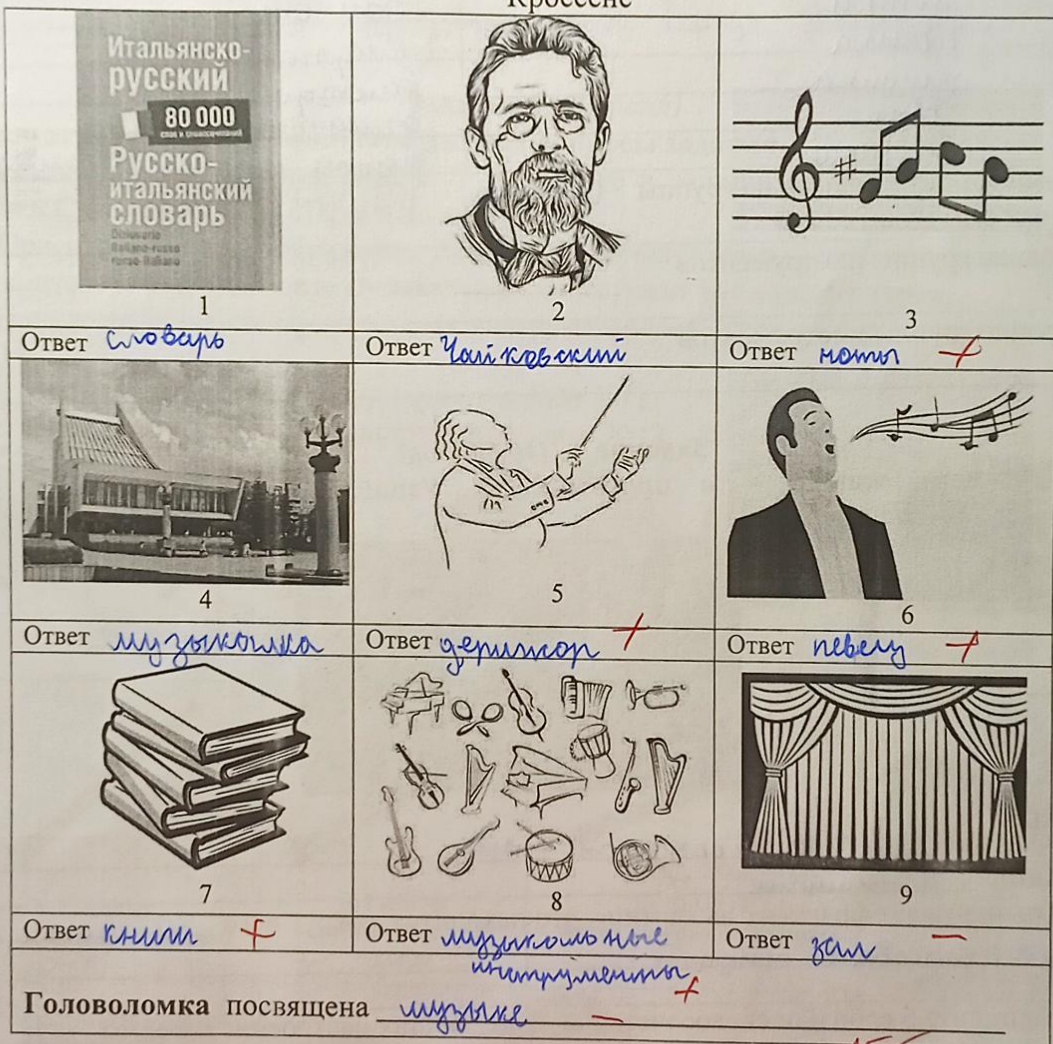 Кроссенс
Итальянско-
русский
80 000
слов и словосочетаний
Русско-
итальянский
словарь
Dizionario
italiano-russo
russo-italiano
1
2
3
Ответ словарь
Ответ Чайковский
Ответ ноты +
4
5
6
Ответ музыкалка
Ответ дерижор +
Ответ певец +
7
8
9
Ответ книги +
Ответ музыкальные
инструменты +
Ответ зал –
Головоломка посвящена музыке –